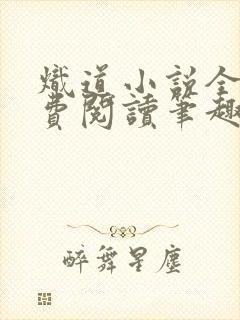 熾道小說全
費閱讀筆趣
醉舞星塵